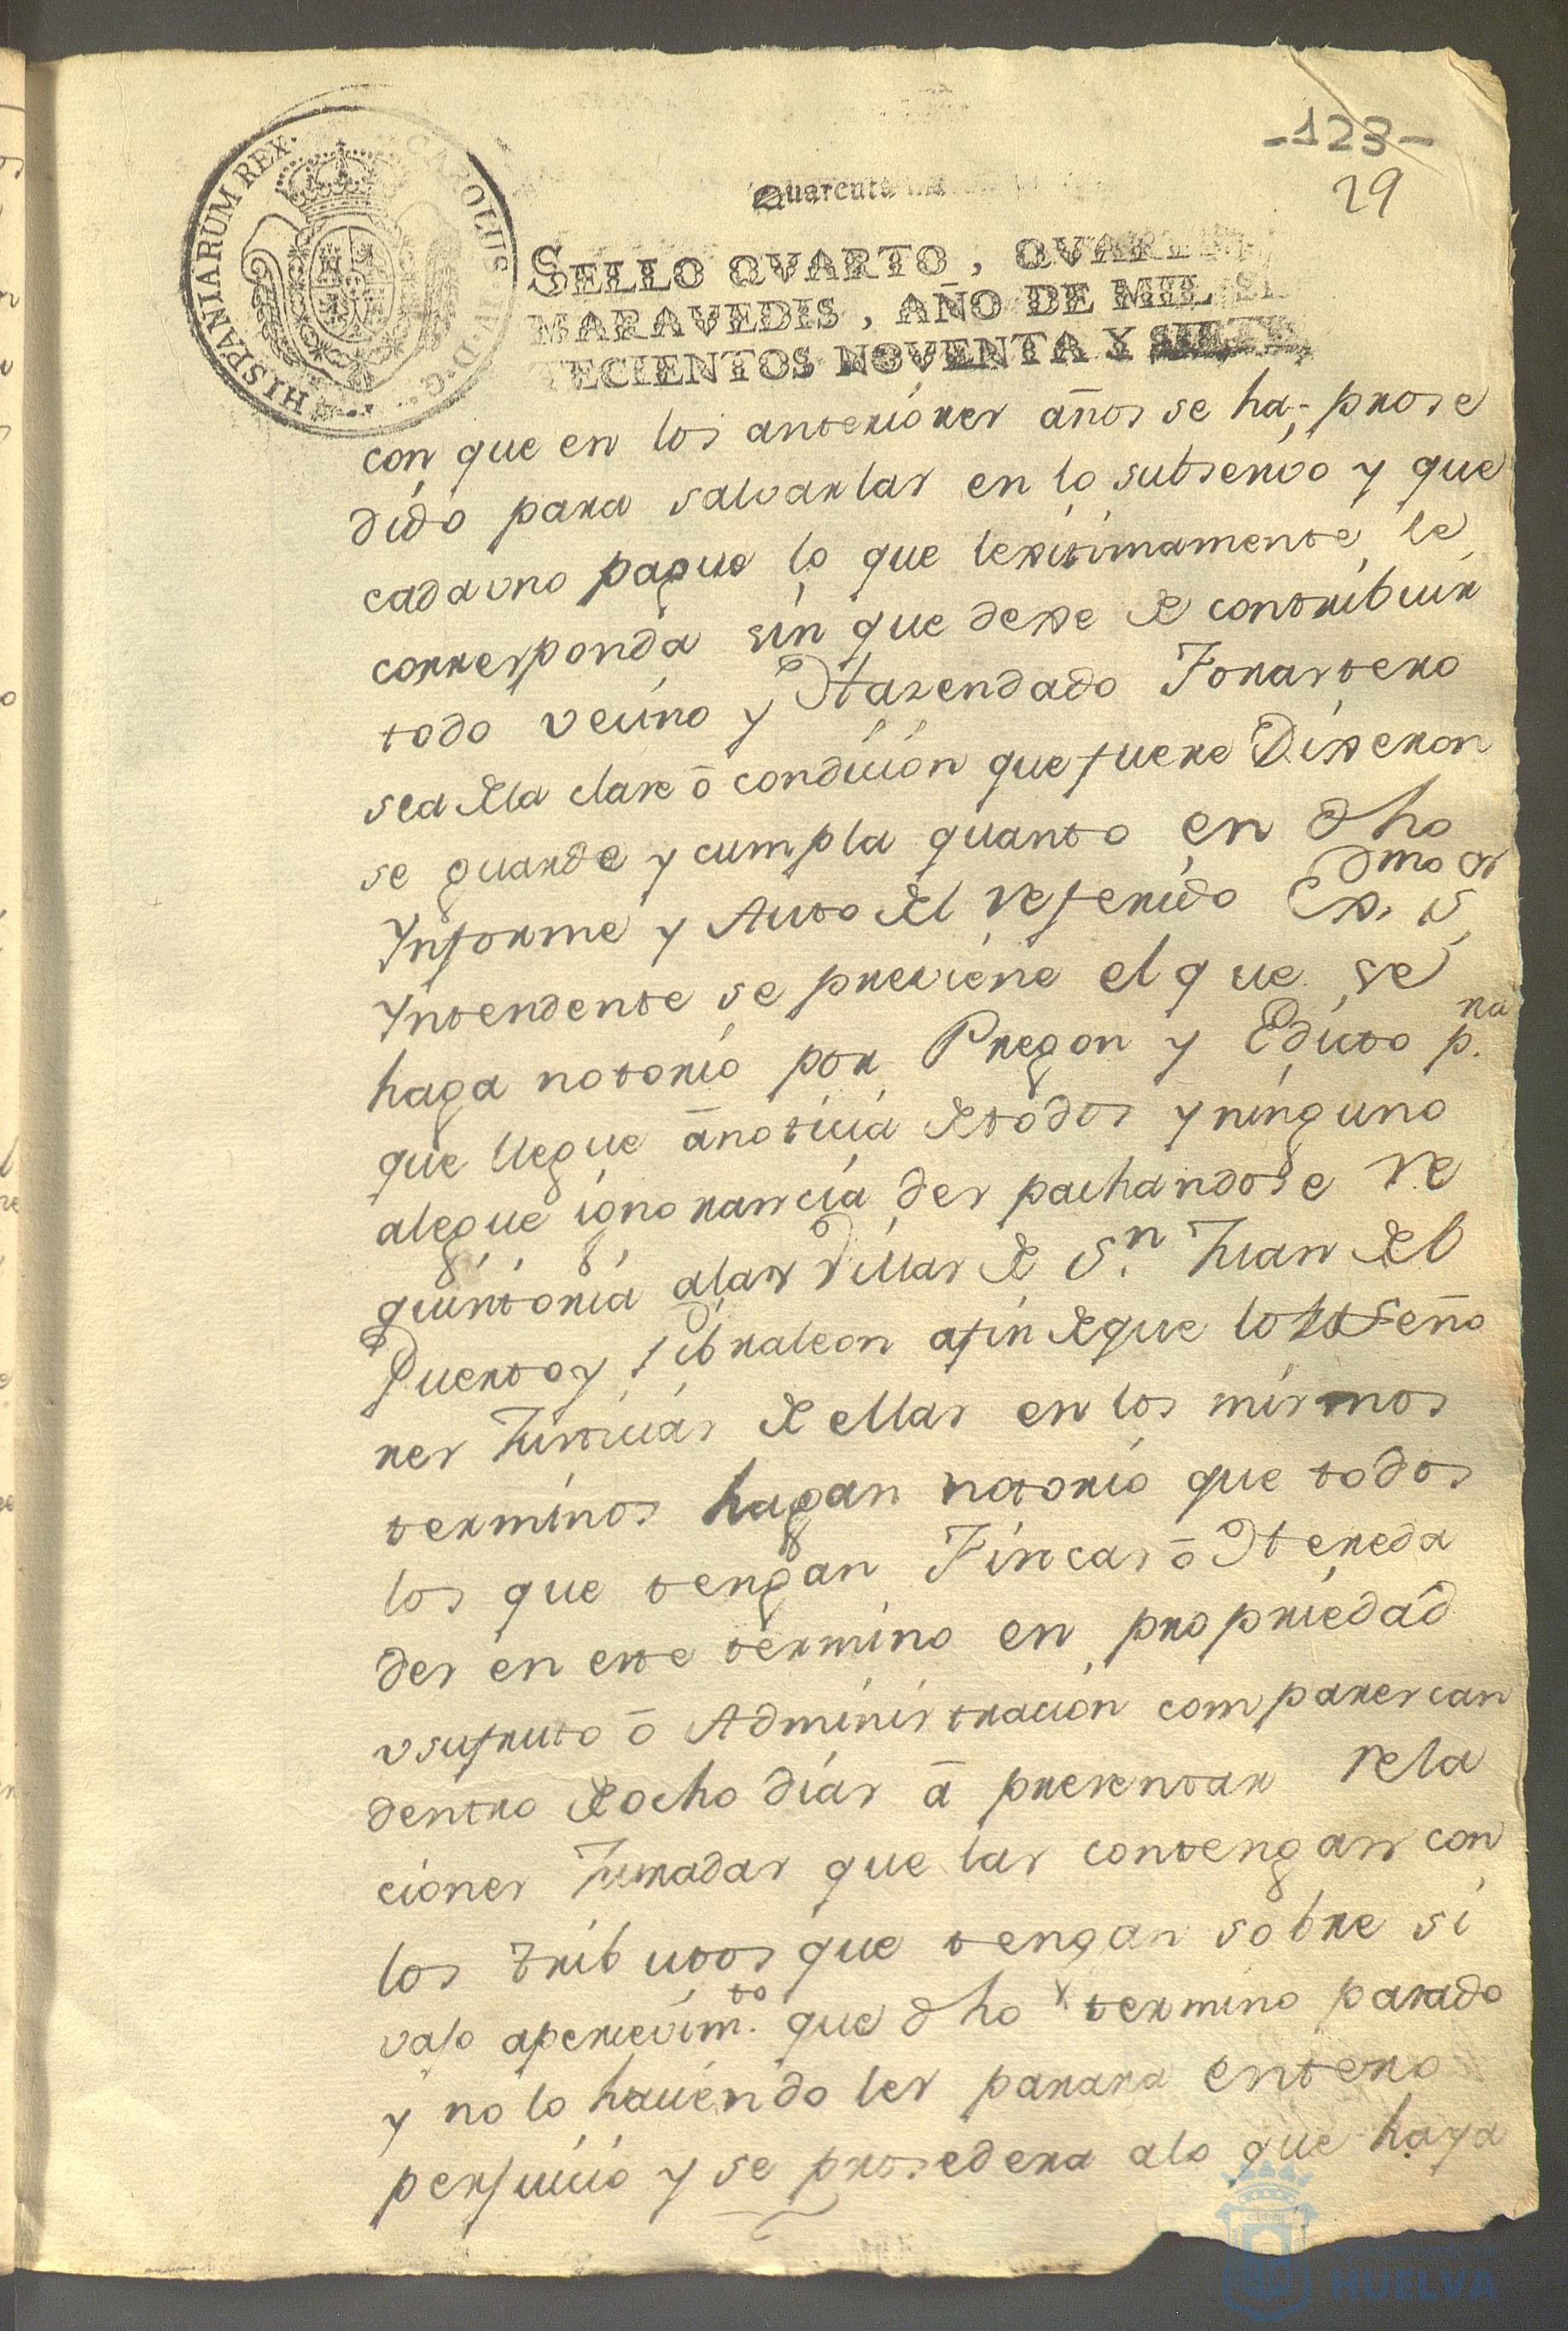 -123-
29
HISPANIARUM REX.
CAROLUS IV D. G.
Quarenta
SELLO QVARTO, QVAREN
MARAVEDIS, AÑO DE MIL SE
TECIENTOS NOVENTA Y SIETE
con que en los anteriores años se ha prose
dido para salvarlas en lo subsesivo y que
cada uno pague lo que lexitimamente le
corresponda sin que dexe de contribuir
todo vecino y Hazendado Forastero
sea de la clase ô condicion que fuere Dixeron
se guarde y cumpla quanto en dho
Ynforme y Auto del referido Exmo Sr
Yntendente se previene el que se
haga notorio por Pregon y Edicto pra
que llegue â noticia de todos y ninguno
alegue ignorancia despachandose re
quisitoria a las Villas de Sn Juan del
Puerto y Gibraleon afin de que los Seño
res Justicias de ellas en los mismos
terminos hagan notorio que todos
los que tengan Fincas ô Hereda
des en este termino en propriedad
usufruto ô Administracion comparescan
dentro de ocho dias â presentar rela
ciones Juradas que las contengan con
los tributos que tengan sobre si
vajo apercevimto que dho termino pasado
y no lo haciendo les parara entero
perjuicio y se prosedera a lo que haya
HUELVA